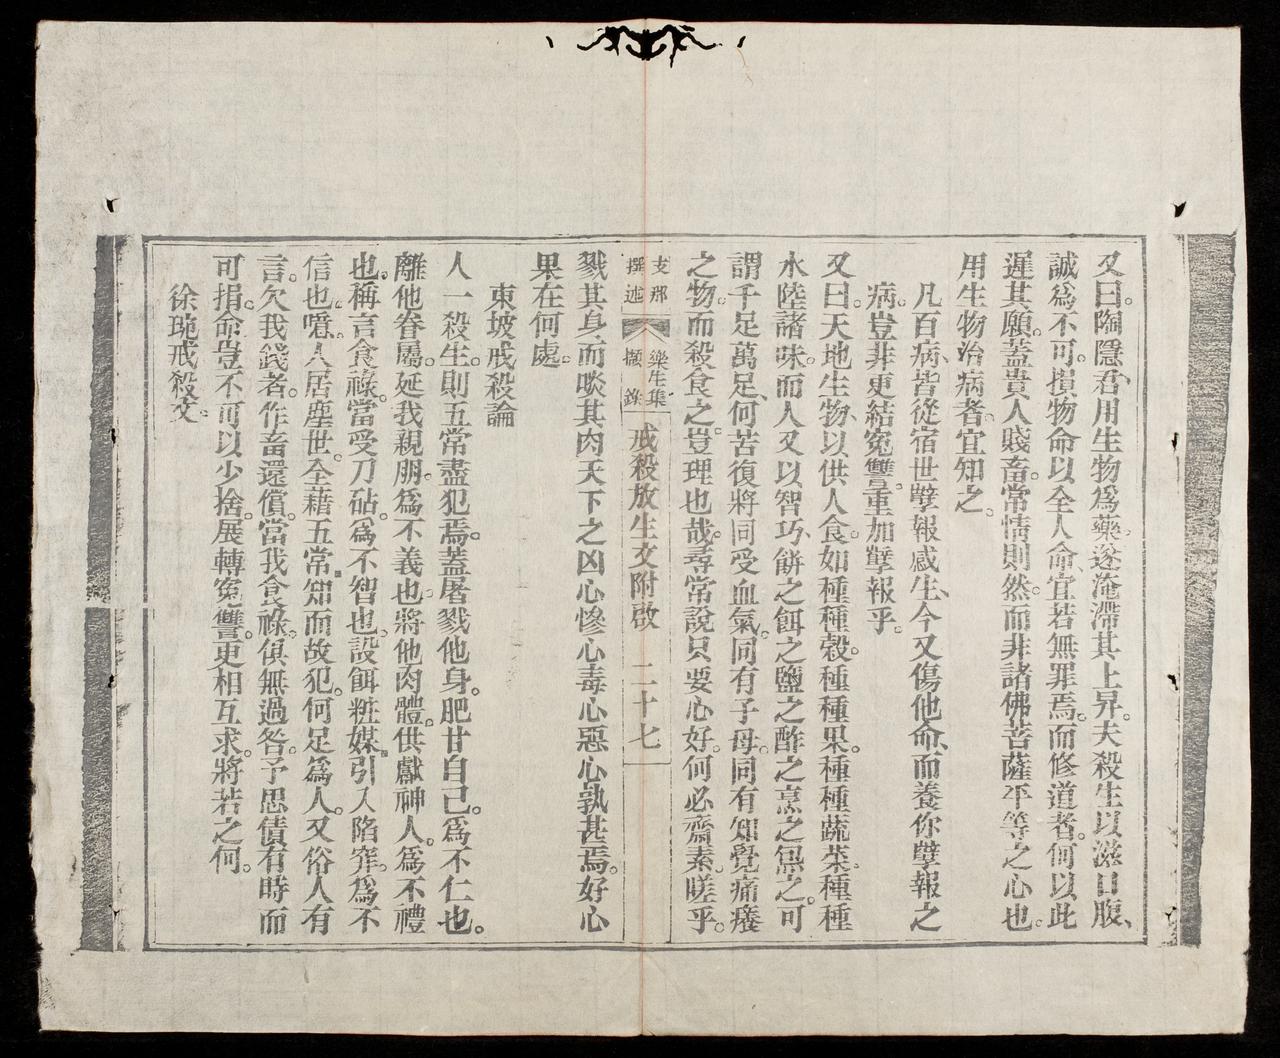 又曰。陶隱君用生物爲藥。遂淹滯其上昇。夫殺生以滋口腹、
誠爲不可。損物命以全人命、宜若無罪焉。而修道者。何以此
遲其願。蓋貴人賤畜。常情則然。而非諸佛菩薩平等之心也。
用生物治病者。宜知之。
凡百病、皆從宿世孽報感生、今又傷他命、而養你孽報之
病。豈非更結冤讐。重加孽報乎。
又曰。天地生物、以供人食。如種種穀。種種果。種種蔬菜。種種
水陸諸味。而人又以智巧、餅之餌之鹽之酢之烹之炰之。可
謂千足萬足、何苦復將同受血氣。同有子母。同有知覺痛癢
之物。而殺食之。豈理也哉。尋常說只要心好。何必齋素。嗟乎。
支那撰述 樂生集擷錄 戒殺放生文附啟 二十七
戮其身。而啖其肉。天下之凶心慘心毒心惡心。孰甚焉。好心
果在何處。
東坡戒殺論
人一殺生。則五常盡犯焉。蓋屠戮他身。肥甘自己。爲不仁也。
離他眷屬。延我親朋。爲不義也。將他肉體。供獻神人。爲不禮
也。稱言食祿。當受刀砧。爲不智也。設餌粧媒。引入陷穽。爲不
信也。噫。人居塵世。全藉五常。知而故犯。何足爲人。又俗人有
言。欠我錢者。作畜還償。當我食祿。俱無過咎。予思債有時而
可捐。命豈不可以少捨。展轉冤讐。更相互求。將若之何。
徐琬戒殺文